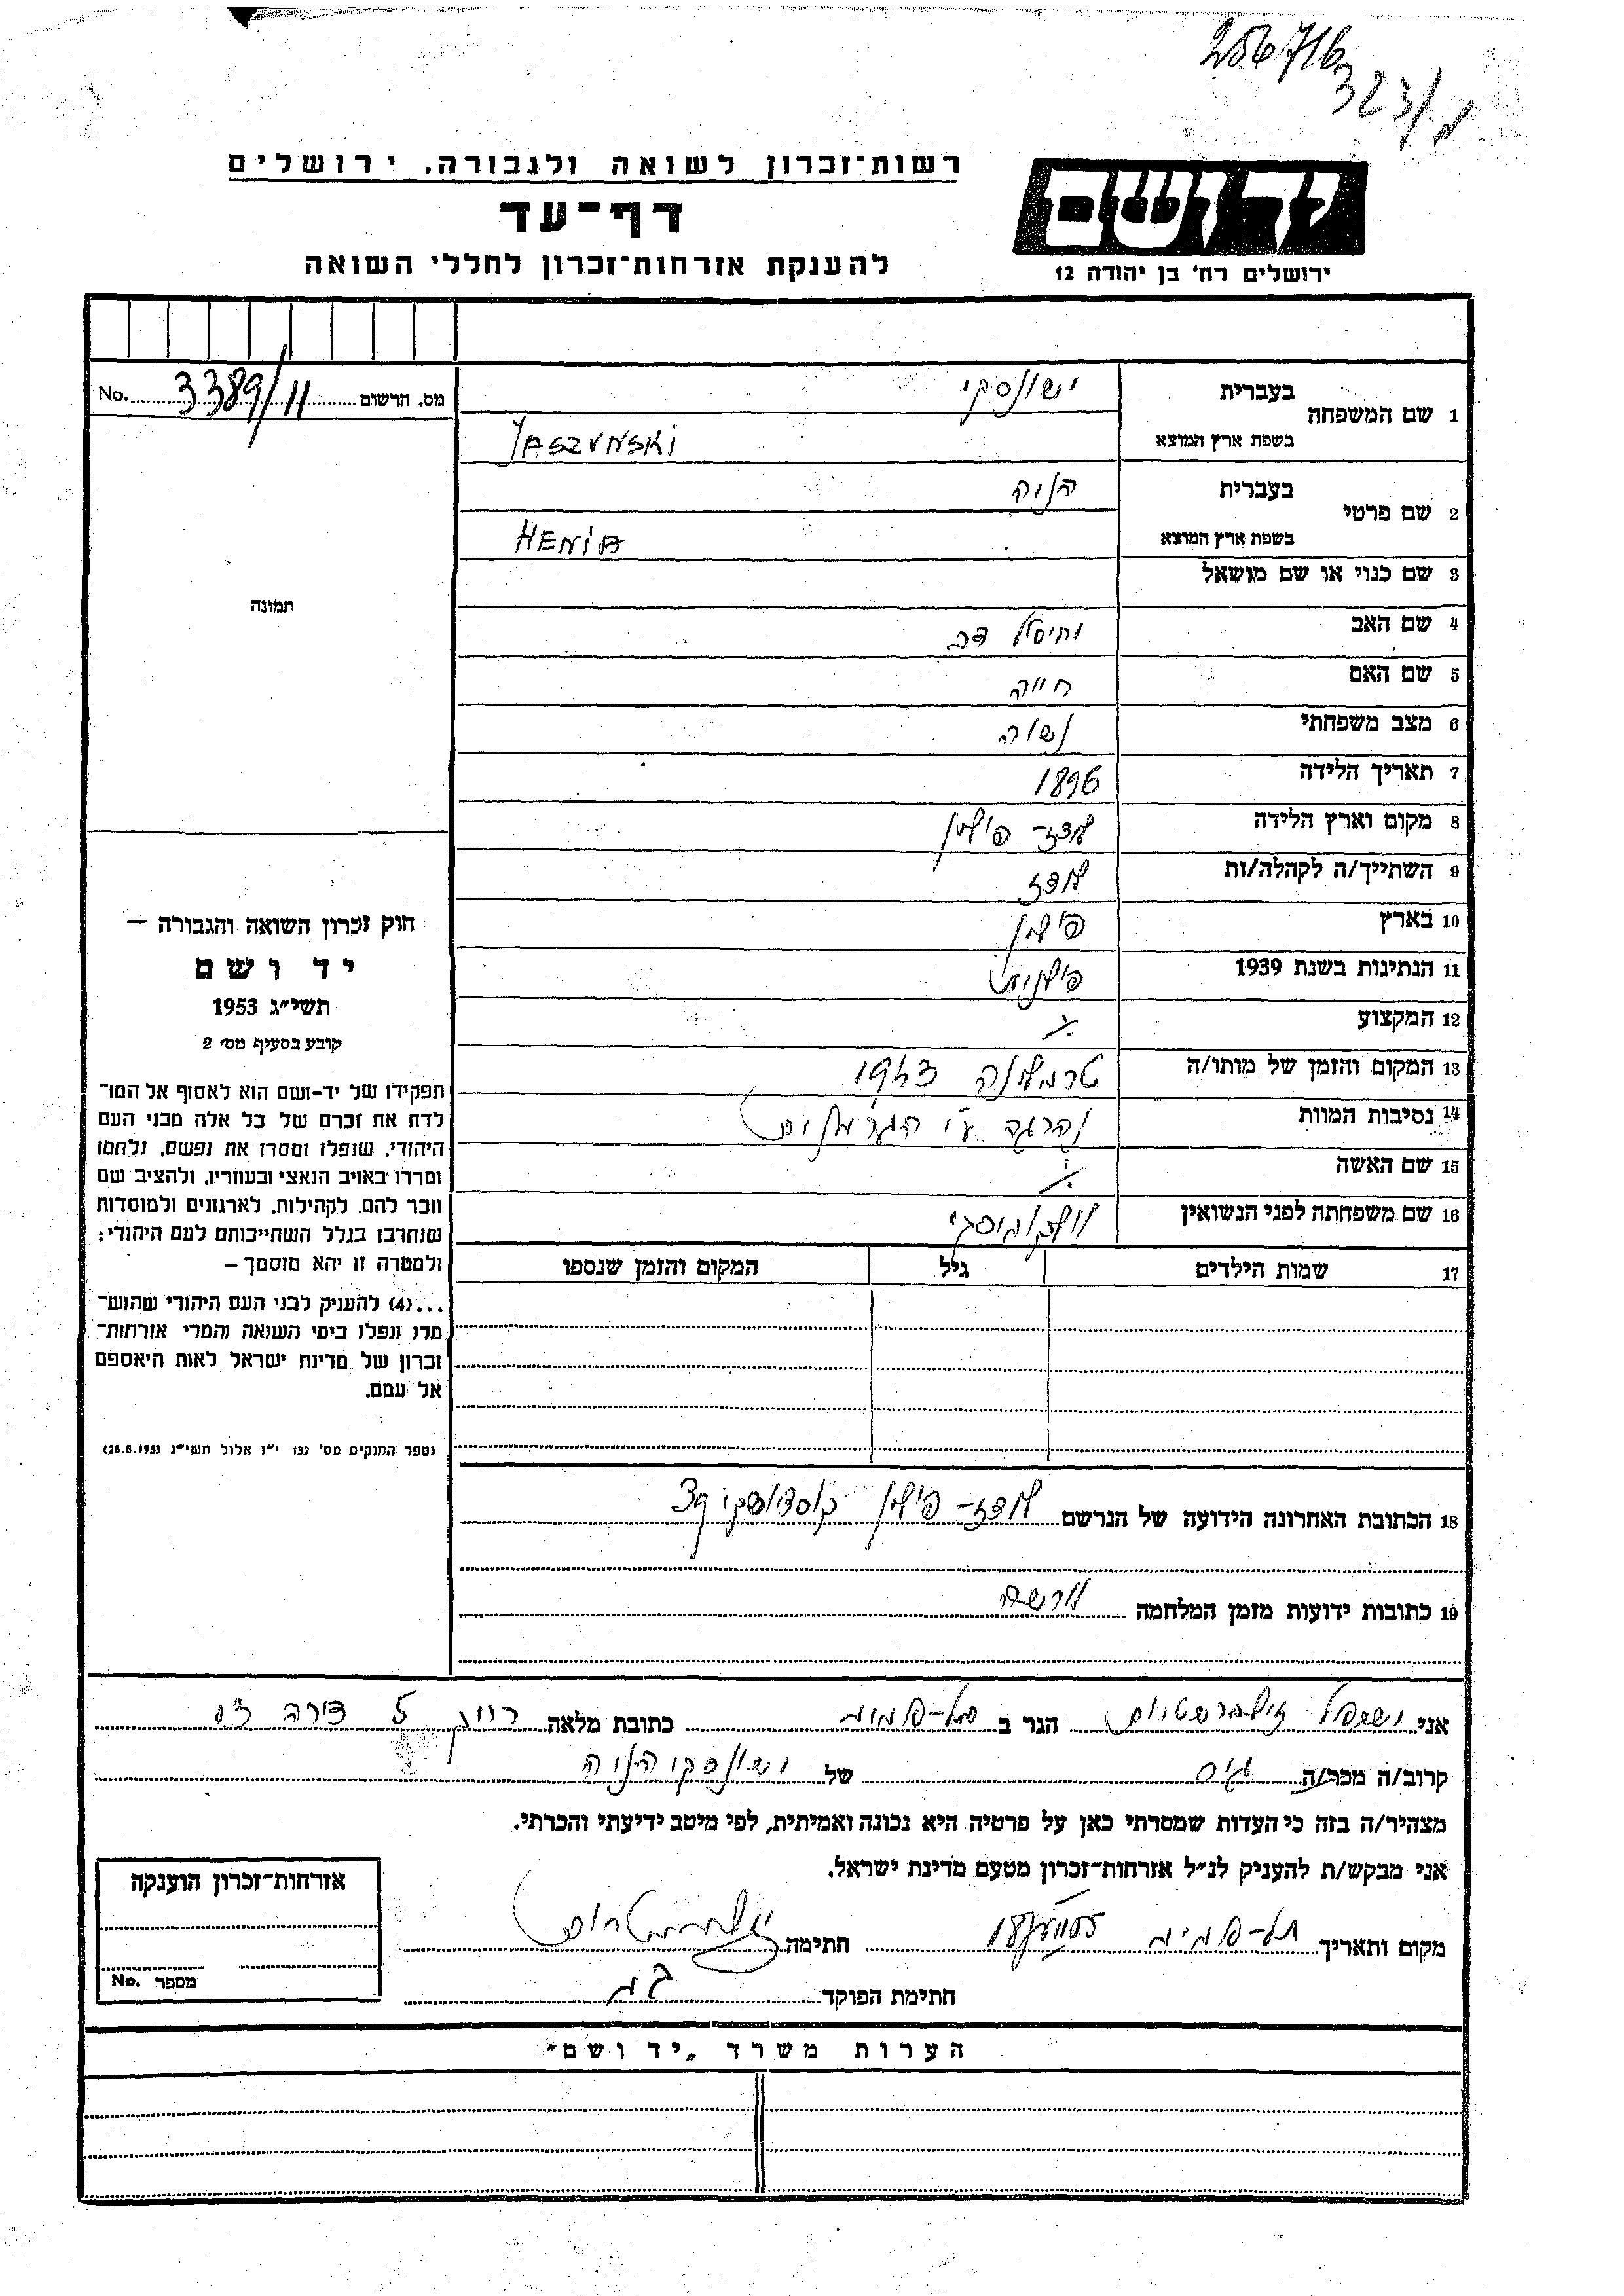 256716
323/
רשות־זכרון לשואה ולגבורה, ירושלים
דף־עד
להענקת אזרחות־זכרון לחללי השואה
יד ושם
ירושלים רח' בן יהודה 12
מס. הרשום 3389/11 No.
1 שם המשפחה
בעברית ישונסקי
בשפת ארץ המוצא JASZUNSKI
2 שם פרטי
בעברית הניה
בשפת ארץ המוצא HENIA
3 שם כנוי או שם מושאל
תמונה
4 שם האב דב
5 שם האם חייה
6 מצב משפחתי נשוי
7 תאריך הלידה 1896
8 מקום וארץ הלידה לודז - פולין
9 השתייך/ה לקהלה/ות לודז
10 בארץ פולין
11 הנתינות בשנת 1939 פולנית
12 המקצוע
13 המקום והזמן של מותו/ה טרבלינקה 1943
14 נסיבות המוות נהרגה ע"י הגרמנים
15 שם האשה
16 שם משפחתה לפני הנשואין
17 שמות הילדים גיל המקום והזמן שנספו
חוק זכרון השואה והגבורה —
יד ושם
תשי״ג 1953
קובע בסעיף מס' 2
תפקידו של יד-ושם הוא לאסוף אל המו־
לדת את זכרם של כל אלה מבני העם
היהודי, שנפלו ומסרו את נפשם, נלחמו
ומרדו באויב הנאצי ובעוזריו, ולהציב שם
וזכר להם, לקהילות, לארגונים ולמוסדות
שנחרבו בגלל השתייכותם לעם היהודי;
ולמטרה זו יהא מוסמך —
...(4) להעניק לבני העם היהודי שהוש־
מדו ונפלו בימי השואה והמרי אזרחות־
זכרון של מדינת ישראל לאות היאספם
אל עמם.
(ספר החוקים מס' 132 י״ז אלול תשי״ג 28.8.1953)
18 הכתובת האחרונה הידועה של הנרשם לודז - פולין 93
19 כתובות ידועות מזמן המלחמה ורשה
אני זילברשטרום הגר ב כתובת מלאה 5 דירה
קרוב/ה מכר/ה גיס של ישונסקי הניה
מצהיר/ה בזה כי העדות שמסרתי כאן על פרטיה היא נכונה ואמיתית, לפי מיטב ידיעתי והכרתי.
אני מבקש/ת להעניק לנ״ל אזרחות־זכרון מטעם מדינת ישראל.
מקום ותאריך חתימה
חתימת הפוקד
אזרחות־זכרון הוענקה
מספר No.
הערות משרד „יד ושם״